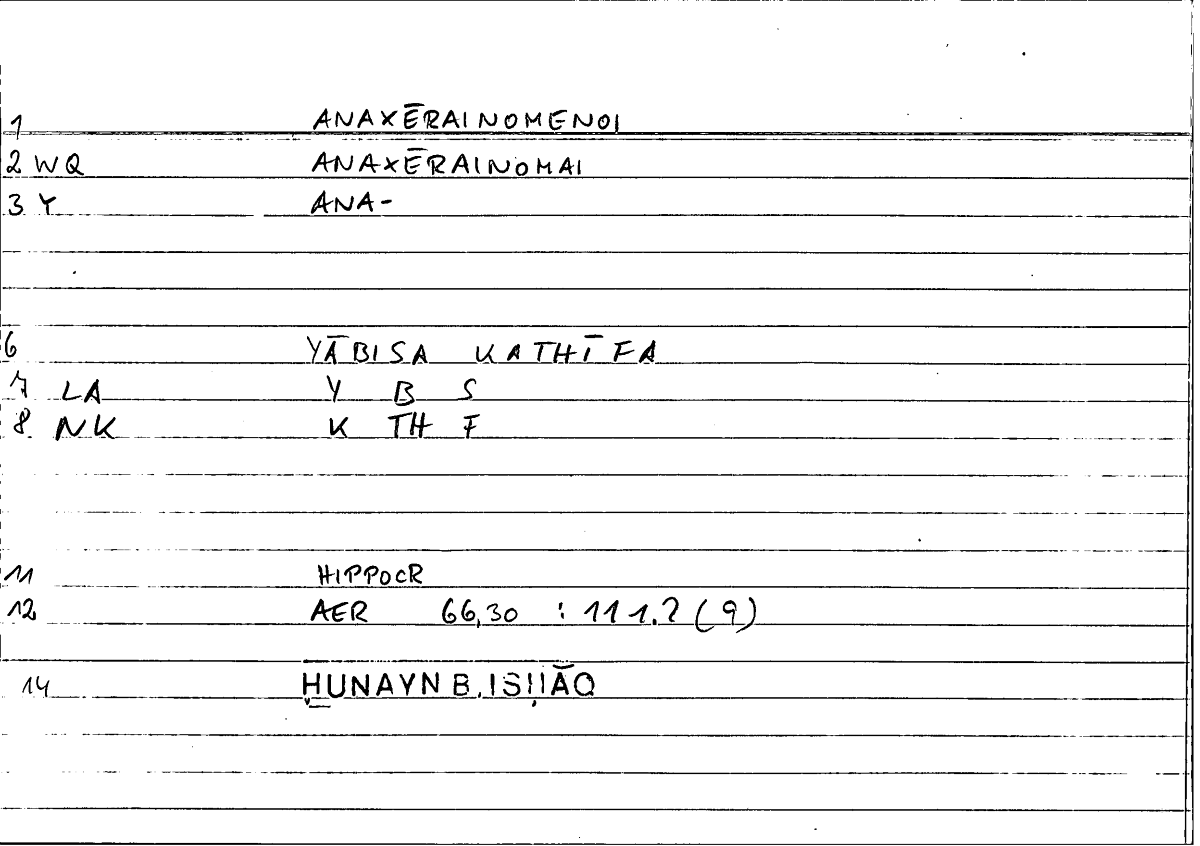 1 ANAXĒRAINOMENOI
2 WQ ANAXĒRAINOMAI
3 Y ANA-
6 YĀBISA KATHĪFA
7 LA Y B S
8. NK K TH F
11 HIPPOCR
12 AER 66,30 : 111.2 (9)
14 ḤUNAYN B. ISḤĀQ